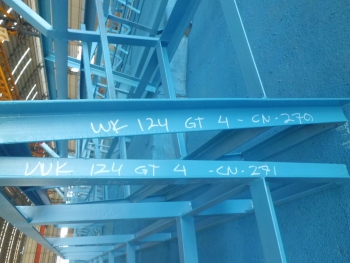 WK 124 GT 4 - CN - 270
WK 124 GT 4 - CN - 271